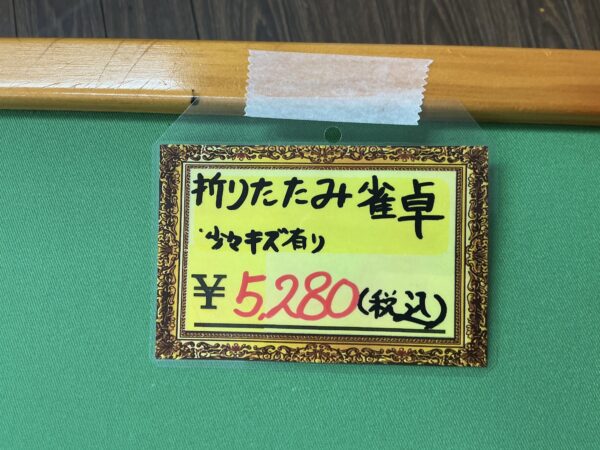 折りたたみ雀卓
・少々キズ有り
¥5,280(税込)